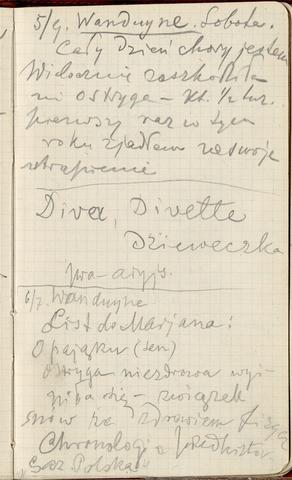 5/9. Wanduyne. Sobota.
Cały dzień chory jestem
Widocznie zaszkodziła
mi Ostryga – kt. 1/2 tuz.
pierwszy raz w tym
roku zjadłem na swoje
utrapienie
Diva, Divette
Dzieweczka
pra-aryjs.
6/7. Wanduyne
List do Marjana:
O pająku (sen)
ostryga niezdrowa
się – związek
snów ze zdrowiem
Chronologia
"Gaz. Polska"